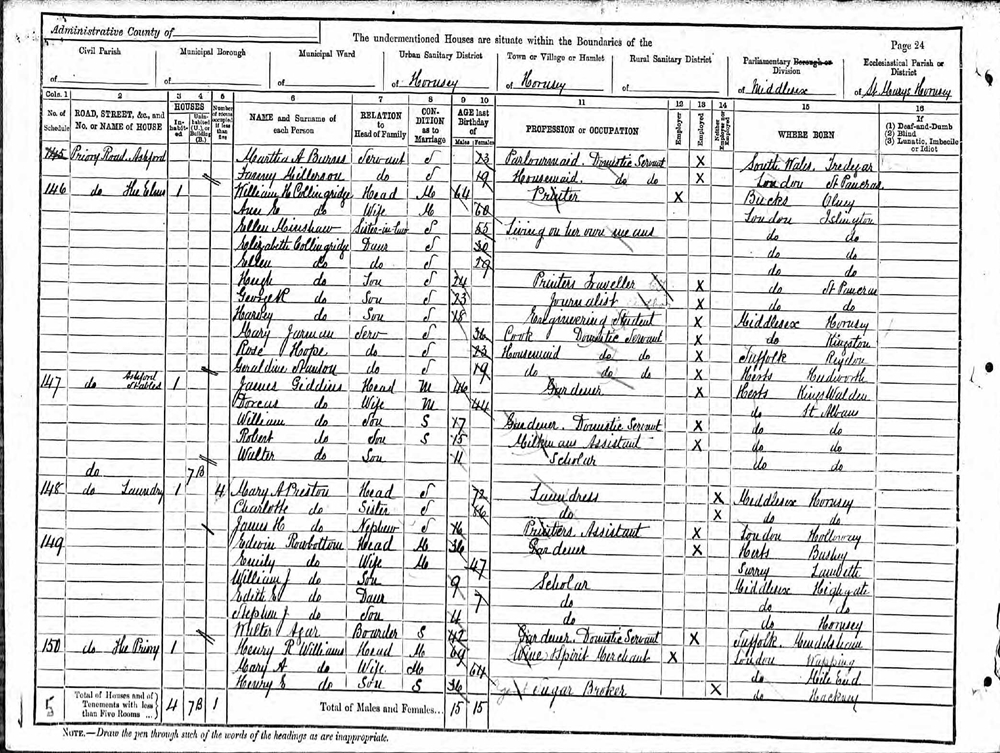 Administrative County of
The undermentioned Houses are situate within the Boundaries of the
Page 24
Civil Parish | Municipal Borough | Municipal Ward | Urban Sanitary District | Town or Village or Hamlet | Rural Sanitary District | Parliamentary Borough or Division | Ecclesiastical Parish or District
of | of | of | of Hornsey | of Hornsey | of | of Middlesex | of Hornsey
Cols. 1 | 2 | 3 | 4 | 5 | 6 | 7 | 8 | 9 | 10 | 11 | 12 | 13 | 14 | 15 | 16
No. of Schedule | ROAD, STREET, &c., and No. or NAME of HOUSE | HOUSES In-habited | Unin-habited (U.) or Building (B.) | Number of rooms occupied if less than five | NAME and Surname of each Person | RELATION to Head of Family | CON-DITION as to Marriage | AGE last Birthday of Males | Females | PROFESSION or OCCUPATION | Employer | Employed | Neither Employer nor Employed | WHERE BORN | If (1) Deaf-and-Dumb (2) Blind (3) Lunatic, Imbecile or Idiot
145 Priory Road Ashford Martha A Burns Servant S 23 Parlourmaid. Domestic Servant X South Wales. Tredegar
Fanny Gillerson do S 19 Housemaid. do do X London St Pancras
146 do The Elms 1 William H Collingridge Head M 64 Printer X Bucks Olney
Ann E do Wife M London Islington
Ellen Minshaw Sister-in-law S 55 Living on her own means do do
Elizabeth Collingridge Daur S 30 do do
Ellen do do S 29 do do
Hugh do Son S 24 Printers Traveller X do St Pancras
George R do Son S 23 Journalist X do do
Harvey do Son S 18 Engineering Student X Middlesex Hornsey
Mary Jarman Serv S 36 Cook Domestic Servant X do Kingston
Rose Hoops do S 23 Housemaid do do X Suffolk
Geraldine do S 19 do do do X Herts
147 do Ashford Stables 1 James Giddins Head M 46 Gardener X Herts Kings Walden
Dorcas do Wife M 44 do St Albans
William do Son S 17 Gardener. Domestic Servant X do do
Robert do Son S 15 Milkmans Assistant X do do
Walter do Son 11 Scholar do do
do 7B
148 do Laundry 1 4 Mary A Preston Head S 72 Laundress X Middlesex Hornsey
Charlotte do Sister S 66 do X do do
James H do Nephew S 16 Printers Assistant X London Holloway
149 Edwin Rowbottom Head M 36 Gardener X Herts Bushey
Emily do Wife M 47 Surrey Lambeth
William J do Son 9 Scholar Middlesex Highgate
Edith E do Daur 7 do do do
Stephen J do Son 4 do do Hornsey
Walter Agar Boarder S 42 Gardener. Domestic Servant X Suffolk. Mendelsham
150 do The Priory 1 Henry R Williams Head M 69 Wine & Spirit Merchant X London Wapping
Mary A do Wife M 64 do Mile End
Henry E do Son S 36 Sugar Broker X do Hackney
5 Total of Houses and of Tenements with less than Five Rooms ... 4 7B 1 Total of Males and Females... 15 15
NOTE.—Draw the pen through such of the words of the headings as are inappropriate.